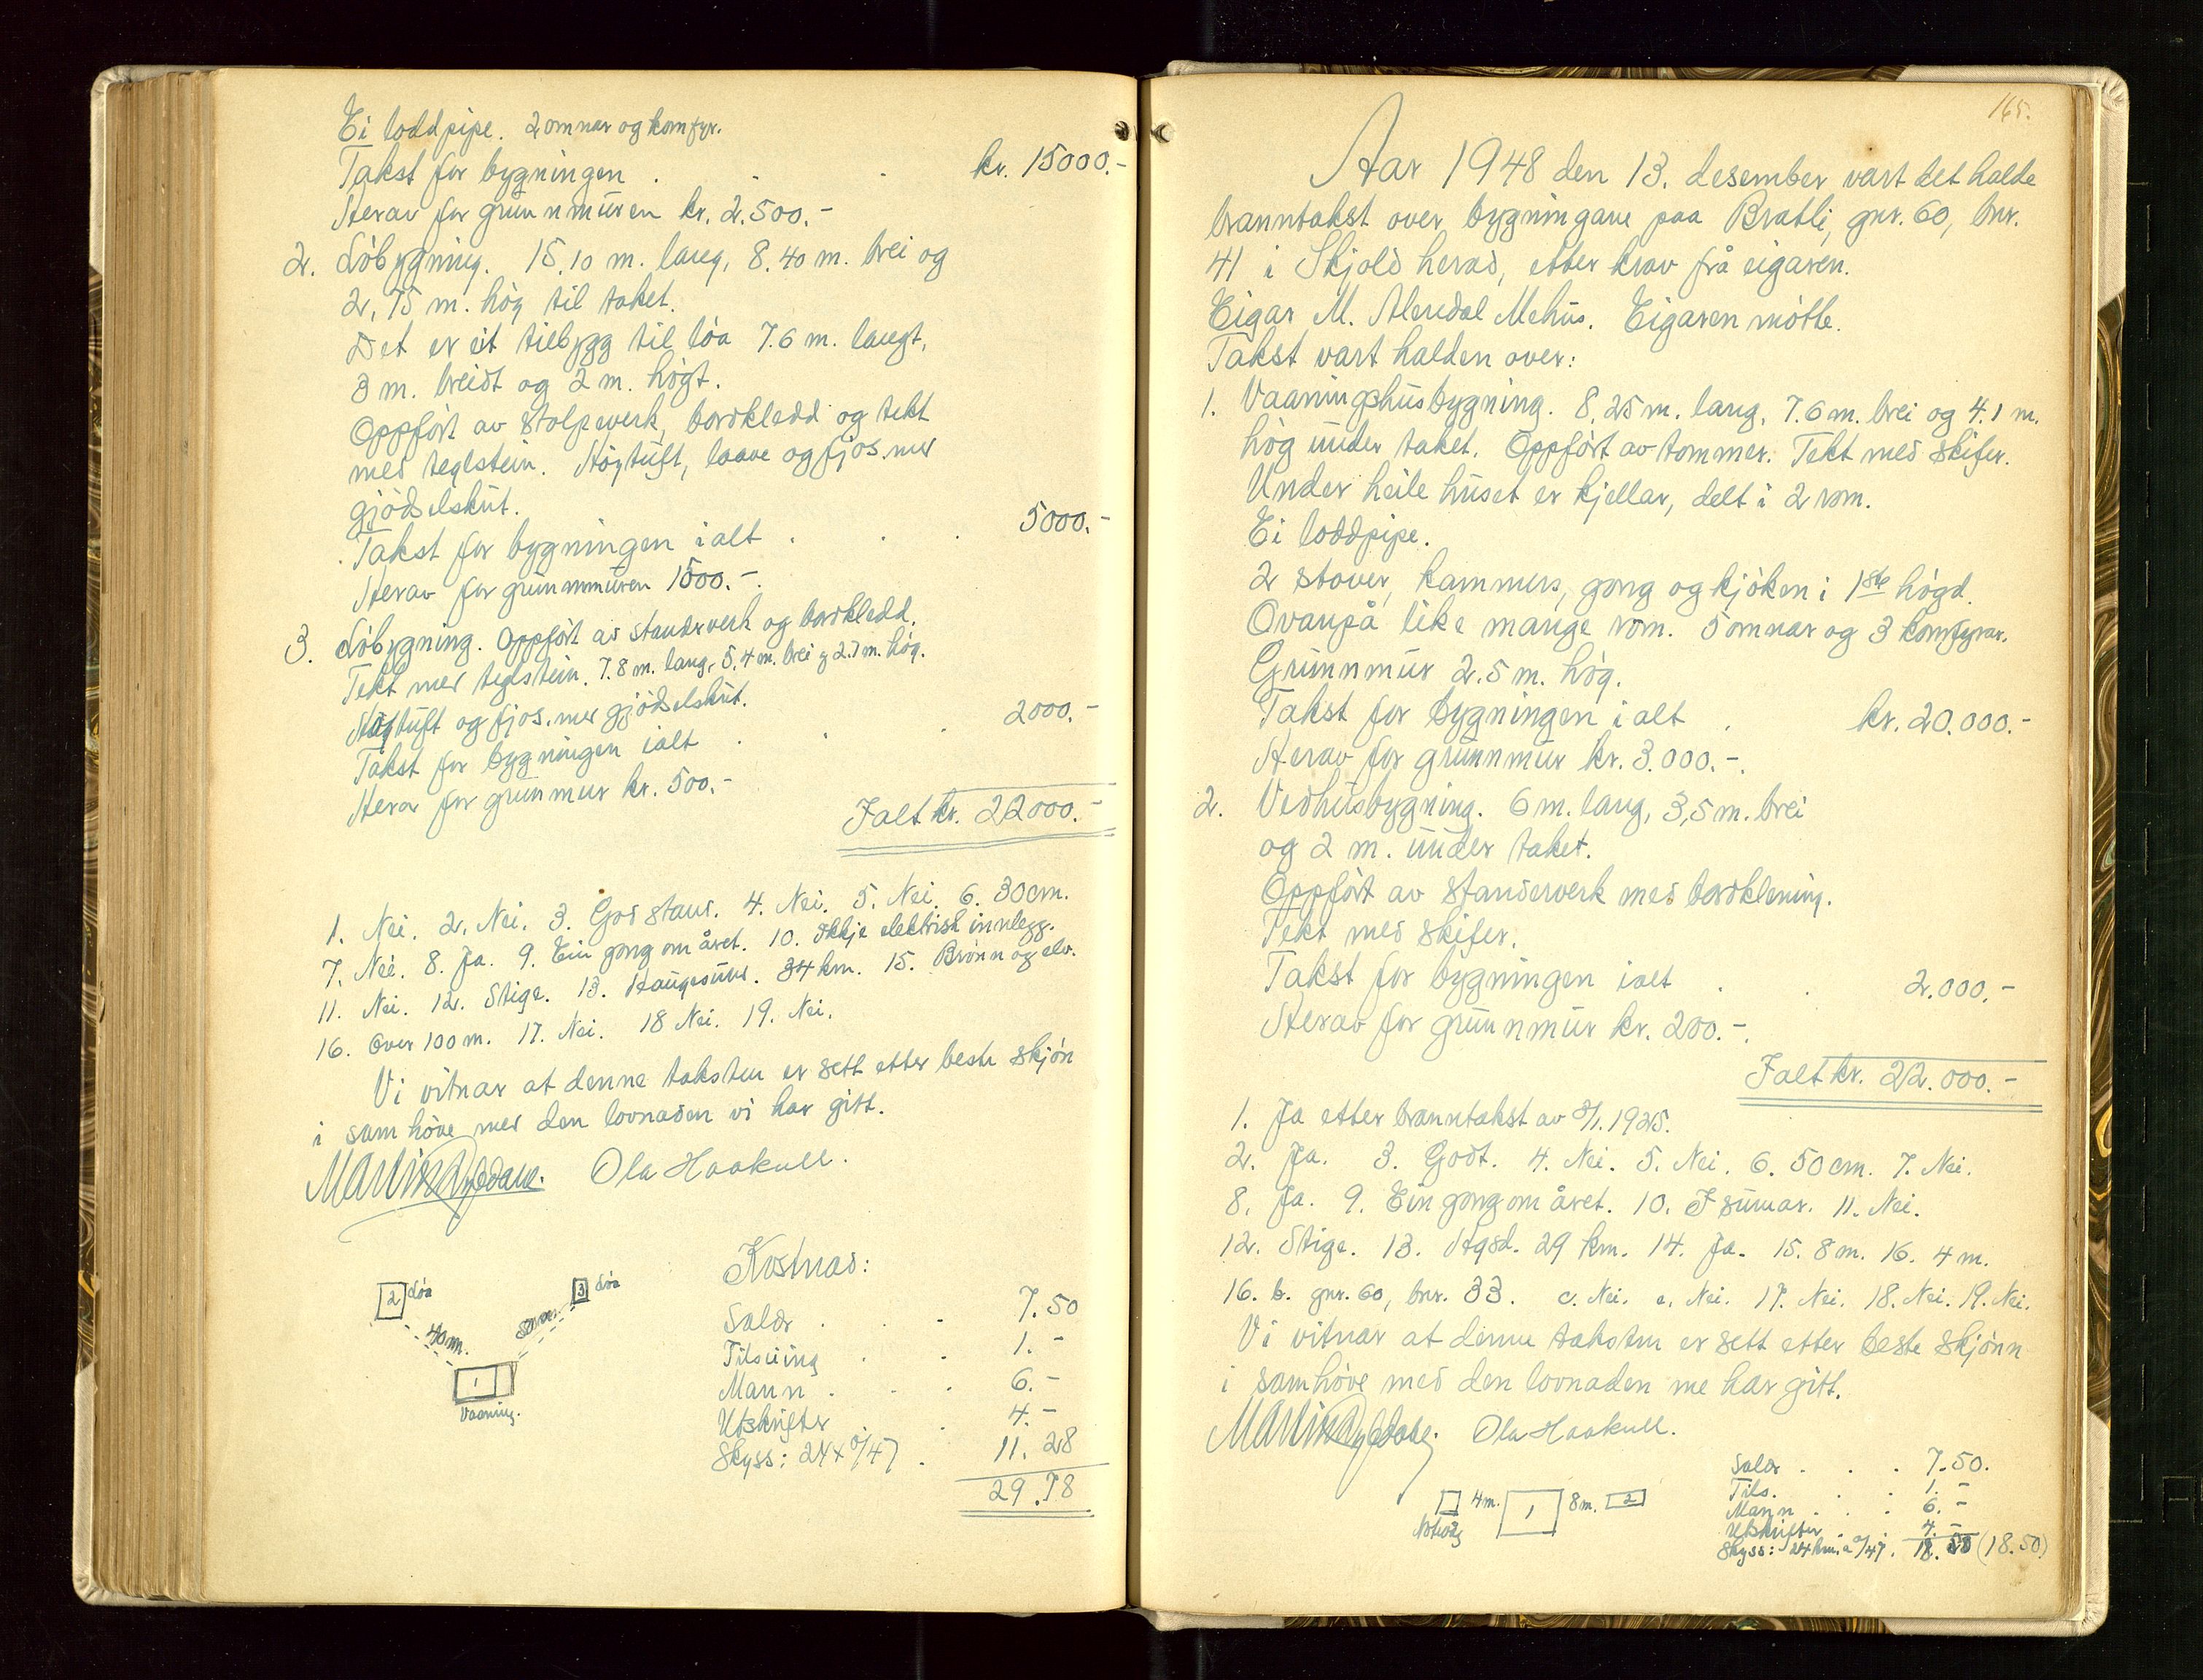 Ei loddpipe. 2 omnar og komfyr.
Takst for bygningen . . . kr. 15000.-
Herav for grunnmuren kr. 2.500.-
2. Löbygning. 15.10 m. lang, 8.40 m. brei og
2,75 m. hög til taket.
Det er eit tilbygg til löa 7.6 m. langt,
3 m. breidt og 2 m. högt.
Oppfört av stolpeverk, bordkledd og tekt
med teglstein. Höytuft, laave og fjos. med
gjödselskut.
Takst for bygningen ialt . . . 5000.-
Herav for grunnmuren 1500.-.
3. Löbygning. Oppfört av standverk og bordkledd.
Tekt med teglstein. 7.8 m. lang, 5.4 m. brei og 2.7 m. hög.
Höytuft og fjos. med gjödselskut.
Takst for bygningen ialt . . . 2000.-
Herav for grunnmur kr. 500.-
Ialt kr. 22000.-
1. Nei. 2. Nei. 3. God stand. 4. Nei. 5. Nei. 6. 30 cm.
7. Nei. 8. Ja. 9. Ein gong om året. 10. Ikkje elektrisk innlegg.
11. Nei. 12. Stige. 13. Haugesund. 34 km. 15. Brönn og elv.
16. Over 100 m. 17. Nei. 18 Nei. 19. Nei.
Vi vitnar at denne taksten er sett etter beste skjön
i samhöve med den lovnaden vi har gitt.
Ola Haakull.
2 Löa
3 Löa
40 m.
50 m.
1
Vaaning.
Kostnad:
Salær . . . 7.50
Tilsuing . . 1.-
Mann . . . 6.-
Utskrifter . 4.-
Skyss: 24 x %/47 . 11.28
29.78
165.
Aar 1948 den 13. desember vart det halde
branntakst over bygningane paa Bratli, gnr. 60, bnr.
41 i Skjold herad, etter krav frå eigaren.
Eigar M. Alendal Mehus. Eigaren mötte.
Takst vart halden over:
1. Vaaningshusbygning. 8,25 m. lang, 7.6 m. brei og 4.1 m.
hög under taket. Oppfört av tommer. Tekt med skifer.
Under heile huset er kjellar, delt i 2 rom.
Ei loddpipe.
2 stover, kammers, gong og kjöken i 1ste högd.
Ovanpå like mange rom. 5 omnar og 3 komfyrar.
Grunnmur 2.5 m. hög.
Takst for bygningen ialt . kr. 20.000.-
Herav for grunnmur kr. 3.000.-.
2. Vedhusbygning. 6 m. lang, 3,5 m. brei
og 2 m. under taket.
Oppfört av standerverk med bordklening.
Tekt med skifer.
Takst for bygningen ialt . . 2.000.-
Herav for grunnmur kr. 200.-.
Ialt kr. 22.000.-
1. Ja etter branntakst av 8/1. 1925.
2. Ja. 3. Godt. 4. Nei. 5. Nei. 6. 50 cm. 7. Nei.
8. Ja. 9. Ein gong om året. 10. I sumar. 11. Nei.
12. Stige. 13. Hgsd. 29 km. 14. Ja. 15. 8 m. 16. 4 m.
16. b. gnr. 60, bnr. 33. c. Nei. e. Nei. 17. Nei. 18. Nei. 19. Nei.
Vi vitnar at denne taksten er sett etter beste skjönn
i samhöve med den lovnaden me har gitt.
Ola Haakull.
4 m. 1 8 m. 2
Salær . . . 7.50.
Tils. . . 1.-
Mann . . . 6.-
Utskrifter . . 4.-
Skyss: 24 km. a %/47. 18.50 (18.50)